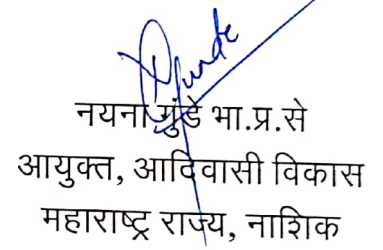 नयना गुंडे भा.प्र.से
आयुक्त, आदिवासी विकास
महाराष्ट्र राज्य, नाशिक